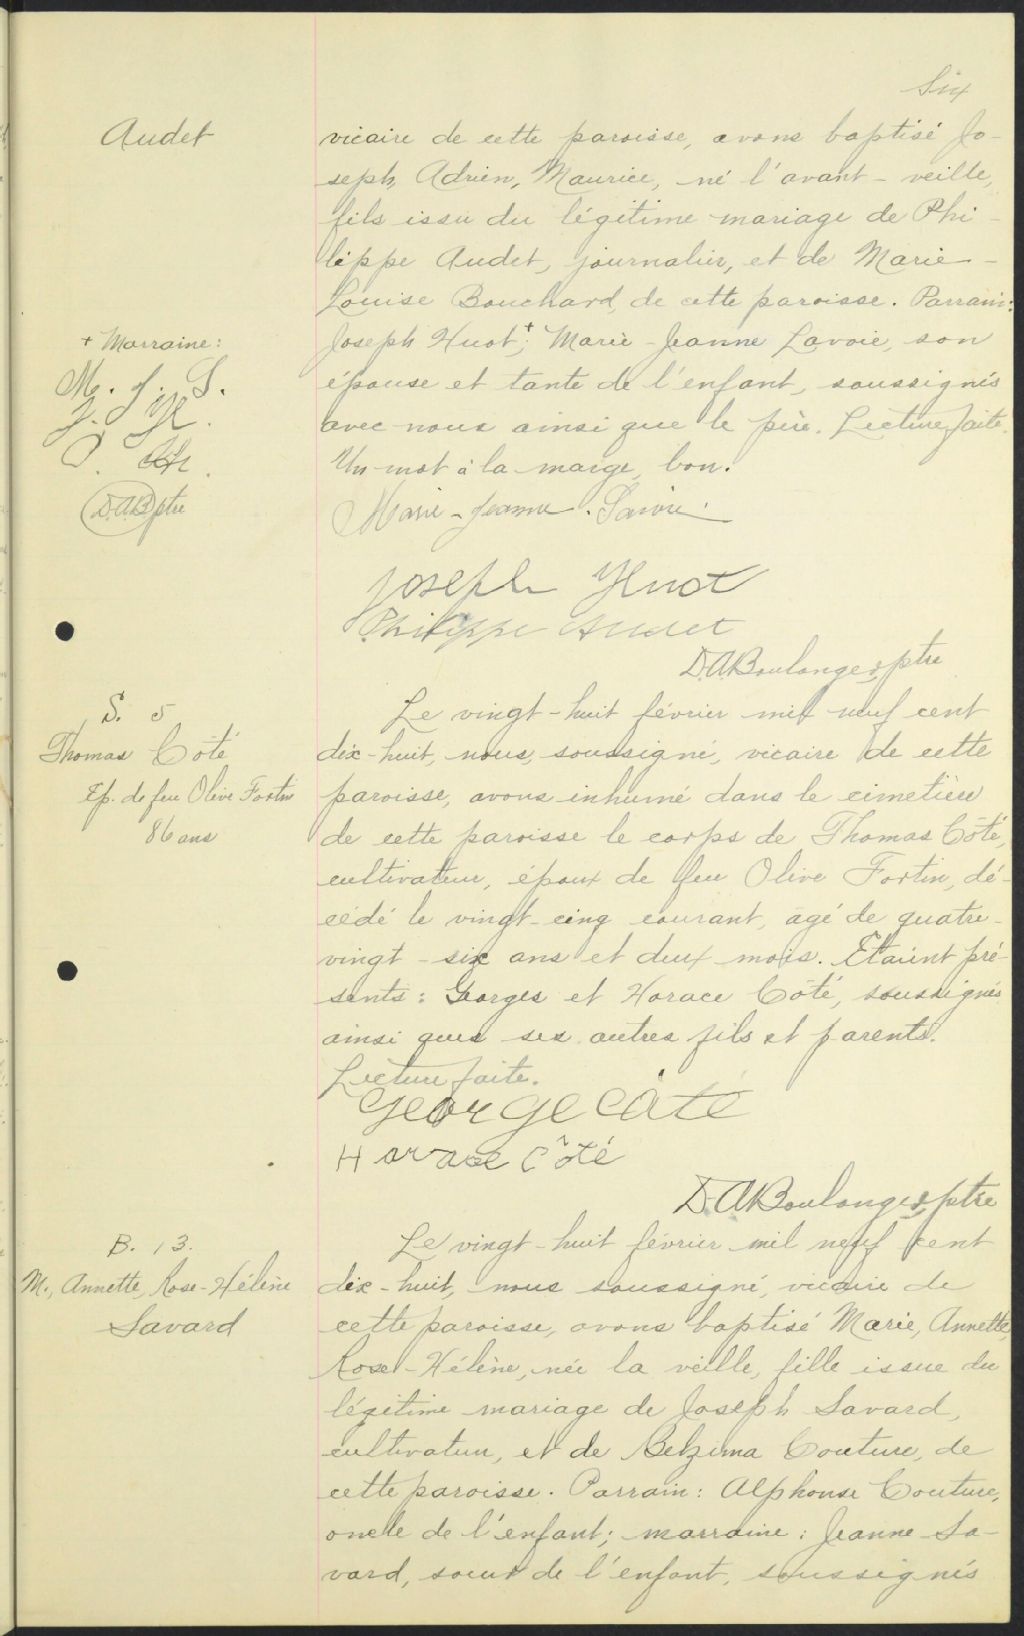 Six
Audet
vicaire de cette paroisse, avons baptisé Jo-
seph, Adrien, Maurice, né l'avant-veille,
fils issu du légitime mariage de Phi-
lippe Audet, journalier, et de Marie-
Louise Bouchard, de cette paroisse. Parrain:
+ Marraine:
Joseph Huot,+ Marie-Jeanne Lavoie, son
M. J. L.
épouse et tante de l'enfant, soussignés
J. H.
avec nous ainsi que le père. Lecture faite.
P. A.
Un mot à la marge, bon.
D.A.B. ptre
Marie-Jeanne Lavoie
Joseph Huot
Philippe Audet
D.A. Boulanger, ptre
S. 5
Thomas Côté
Ep. de feu Olive Fortin
86 ans
Le vingt-huit février mil neuf cent
dix-huit, nous, soussigné, vicaire de cette
paroisse, avons inhumé dans le cimetière
de cette paroisse le corps de Thomas Côté,
cultivateur, époux de feu Olive Fortin, dé-
cédé le vingt-cinq courant, âgé de quatre-
vingt-six ans et deux mois. Etaient pré-
sents: Georges et Horace Côté, soussignés
ainsi que ses autres fils et parents.
Lecture faite.
George Côté
Horace Côté
D.A. Boulanger, ptre
B. 13.
M., Annette, Rose-Hélène
Savard
Le vingt-huit février mil neuf cent
dix-huit, nous soussigné, vicaire de
cette paroisse, avons baptisé Marie, Annette,
Rose-Hélène, née la veille, fille issue du
légitime mariage de Joseph Savard,
cultivateur, et de Belzima Couture, de
cette paroisse. Parrain: Alphonse Couture,
oncle de l'enfant; marraine: Jeanne Sa-
vard, soeur de l'enfant, soussignés